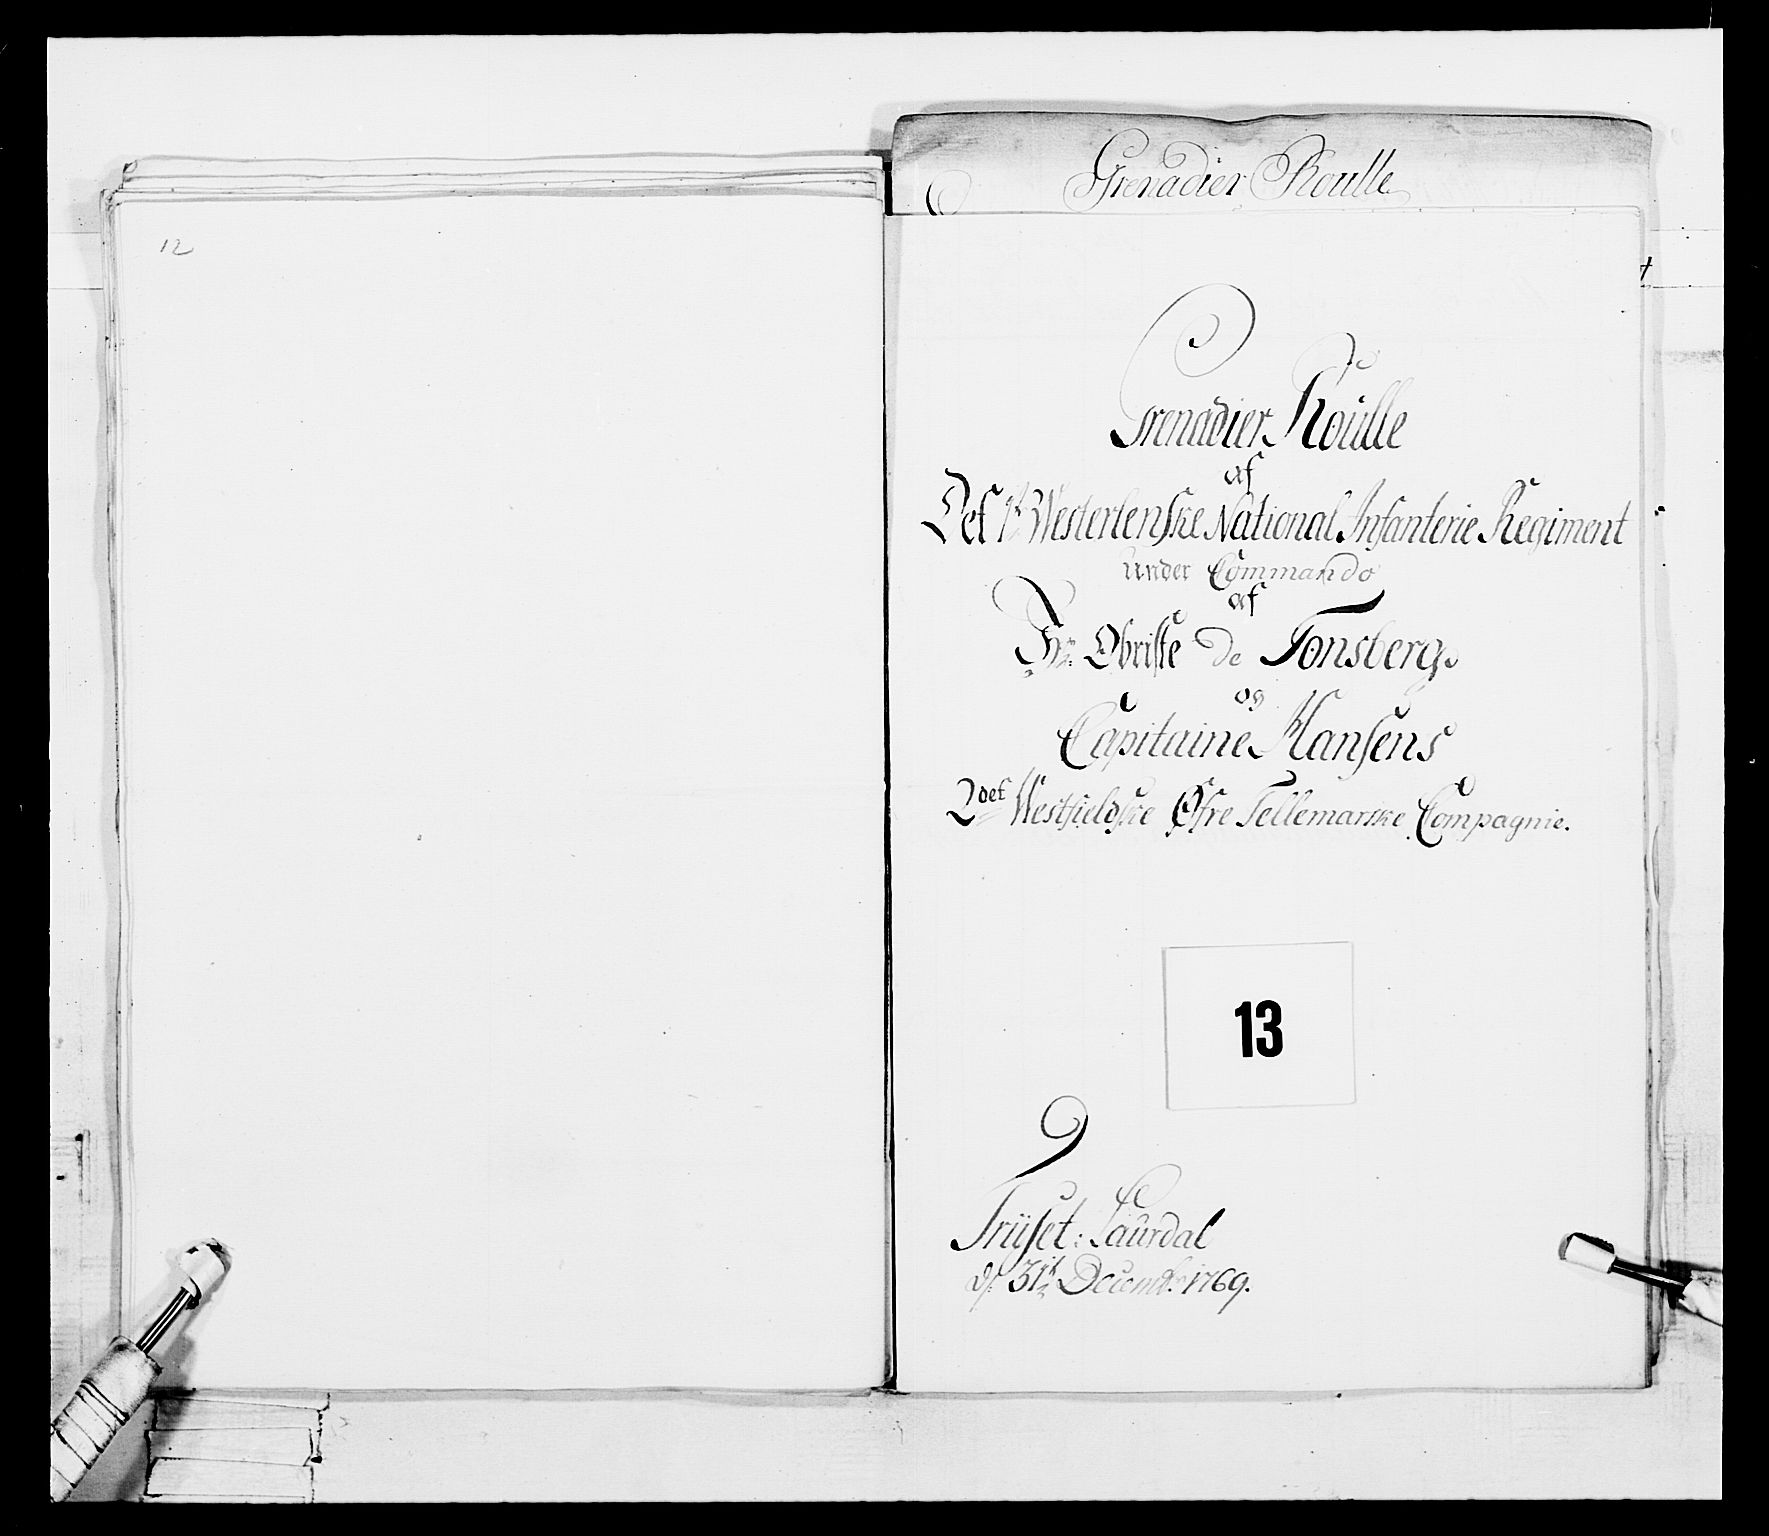 12
Grenadier Roulle
Grenadier Roulle
af
Det 1te Westerlenske National Infanterie Regiment
under Commando
af
Hr: Obriste de Tonsberg
og
Capitaine Hansens
2det Westfieldske Øfre Tellemarske Compagnie.
13
Trüset: Laurdal
d: 31te Decembr: 1769.